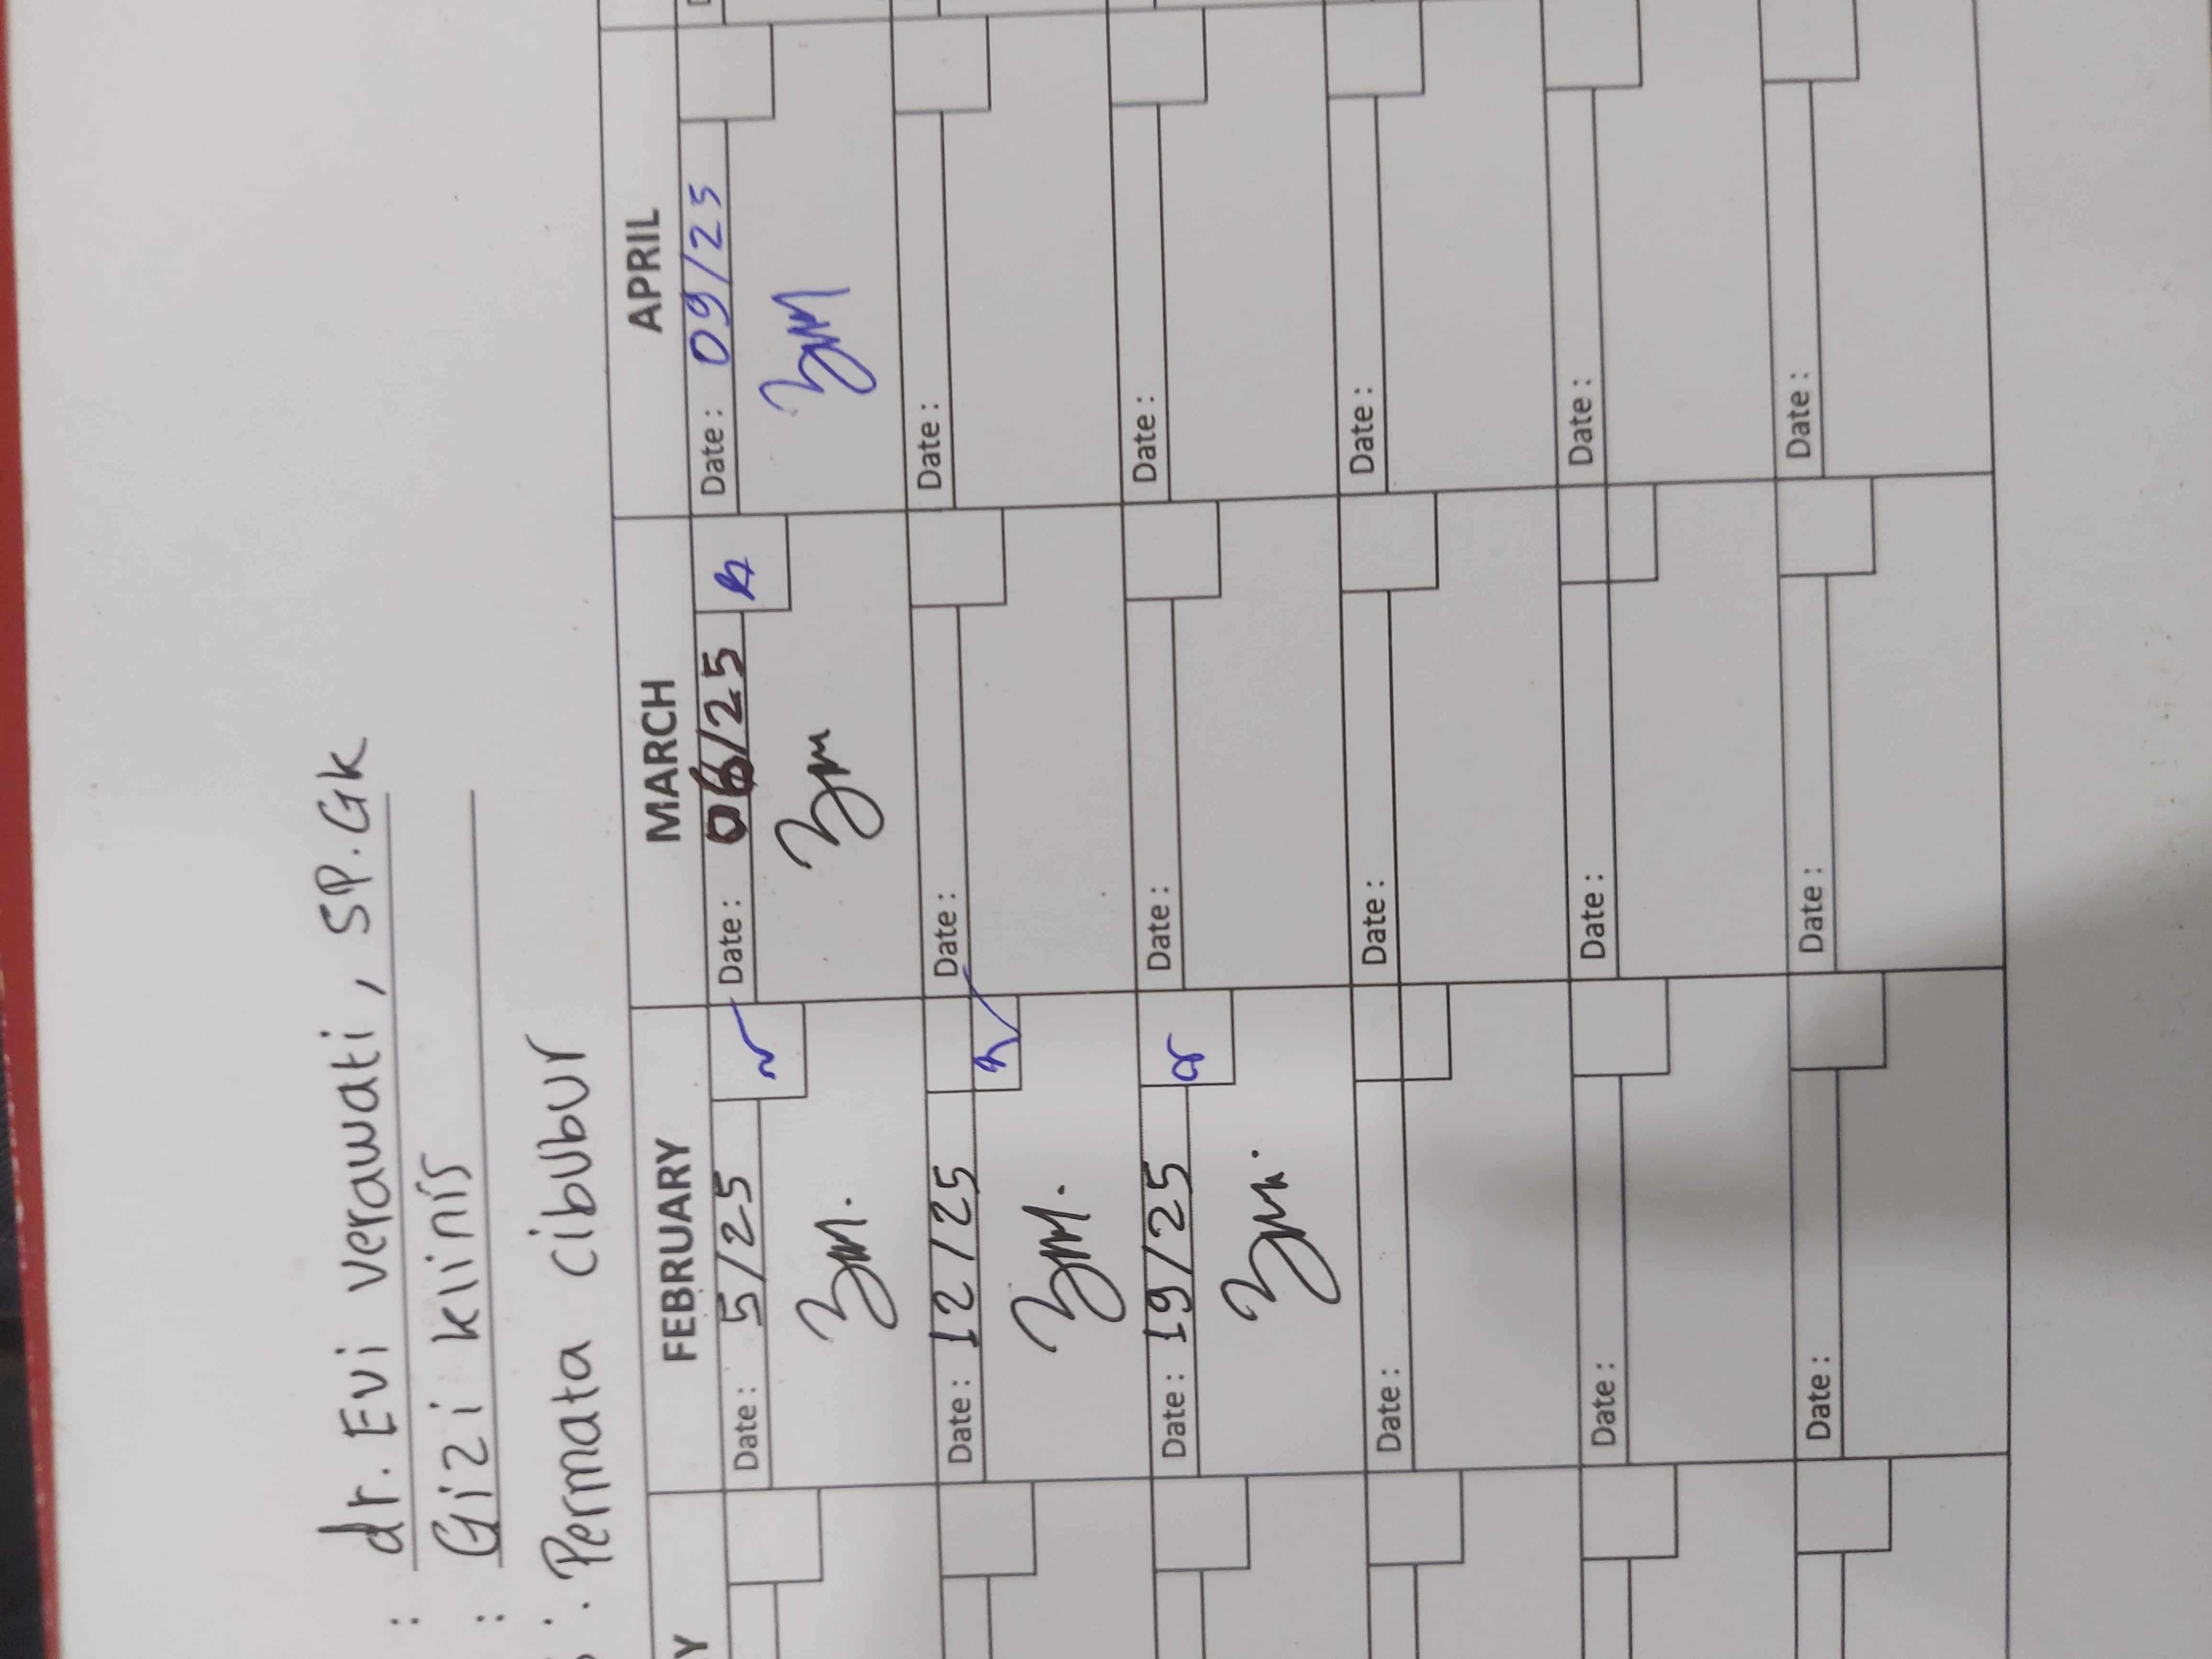 : dr. Evi Verawati, SP.Gk
: Gizi klinis
: Permata cibubur
Y FEBRUARY MARCH APRIL
Date : 5/25 Date : 06/25 Date : 09/25
Date : 12/25 Date : Date :
Date : 19/25 Date : Date :
Date : Date : Date :
Date : Date : Date :
Date : Date : Date :